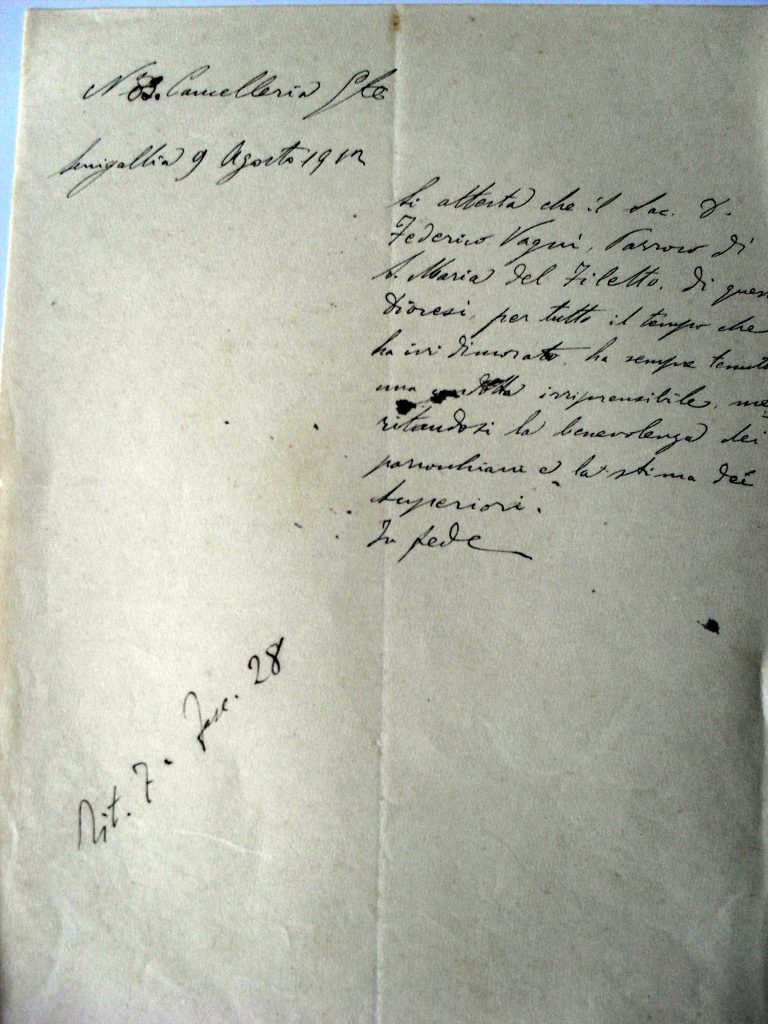 N 83. Cancelleria
Senigallia 9 Agosto 1912
Si attesta che il Sac. D.
Federico Vagni, Parroco di
S. Maria del Filetto, di ques
Diocesi, per tutto il tempo che
ha ivi dimorato, ha sempre tenuto
una condotta irriprensibile, me
ritandosi la benevolenza dei
parrochiani e la stima dei
Superiori.
In fede
Tit. 7 - Fasc. 28